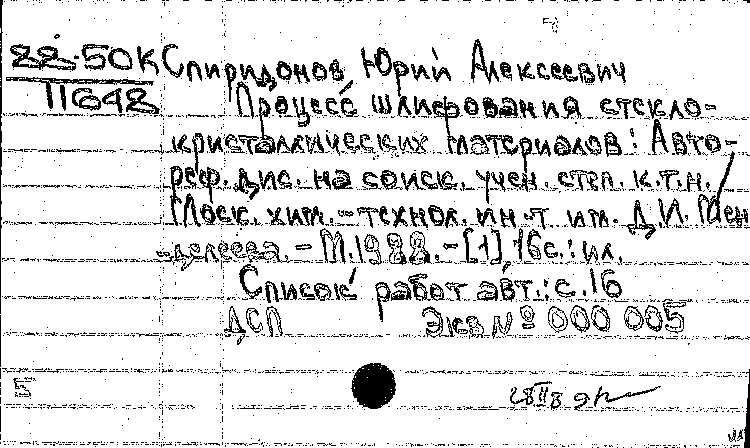 22.50К Спиридонов, Юрий Алексеевич
11642 Процесс шлифования стекло-
кристаллических материалов: Авто-
реф. дис. на соиск. учен. степ. к.т.н. /
Моск. хим.-технол. ин-т им. Д.И. Мен
-делеева. - М. 1988. - [1], 16с.: ил.
Список работ авт.: с. 16
ДСП Экз № 000 005
5